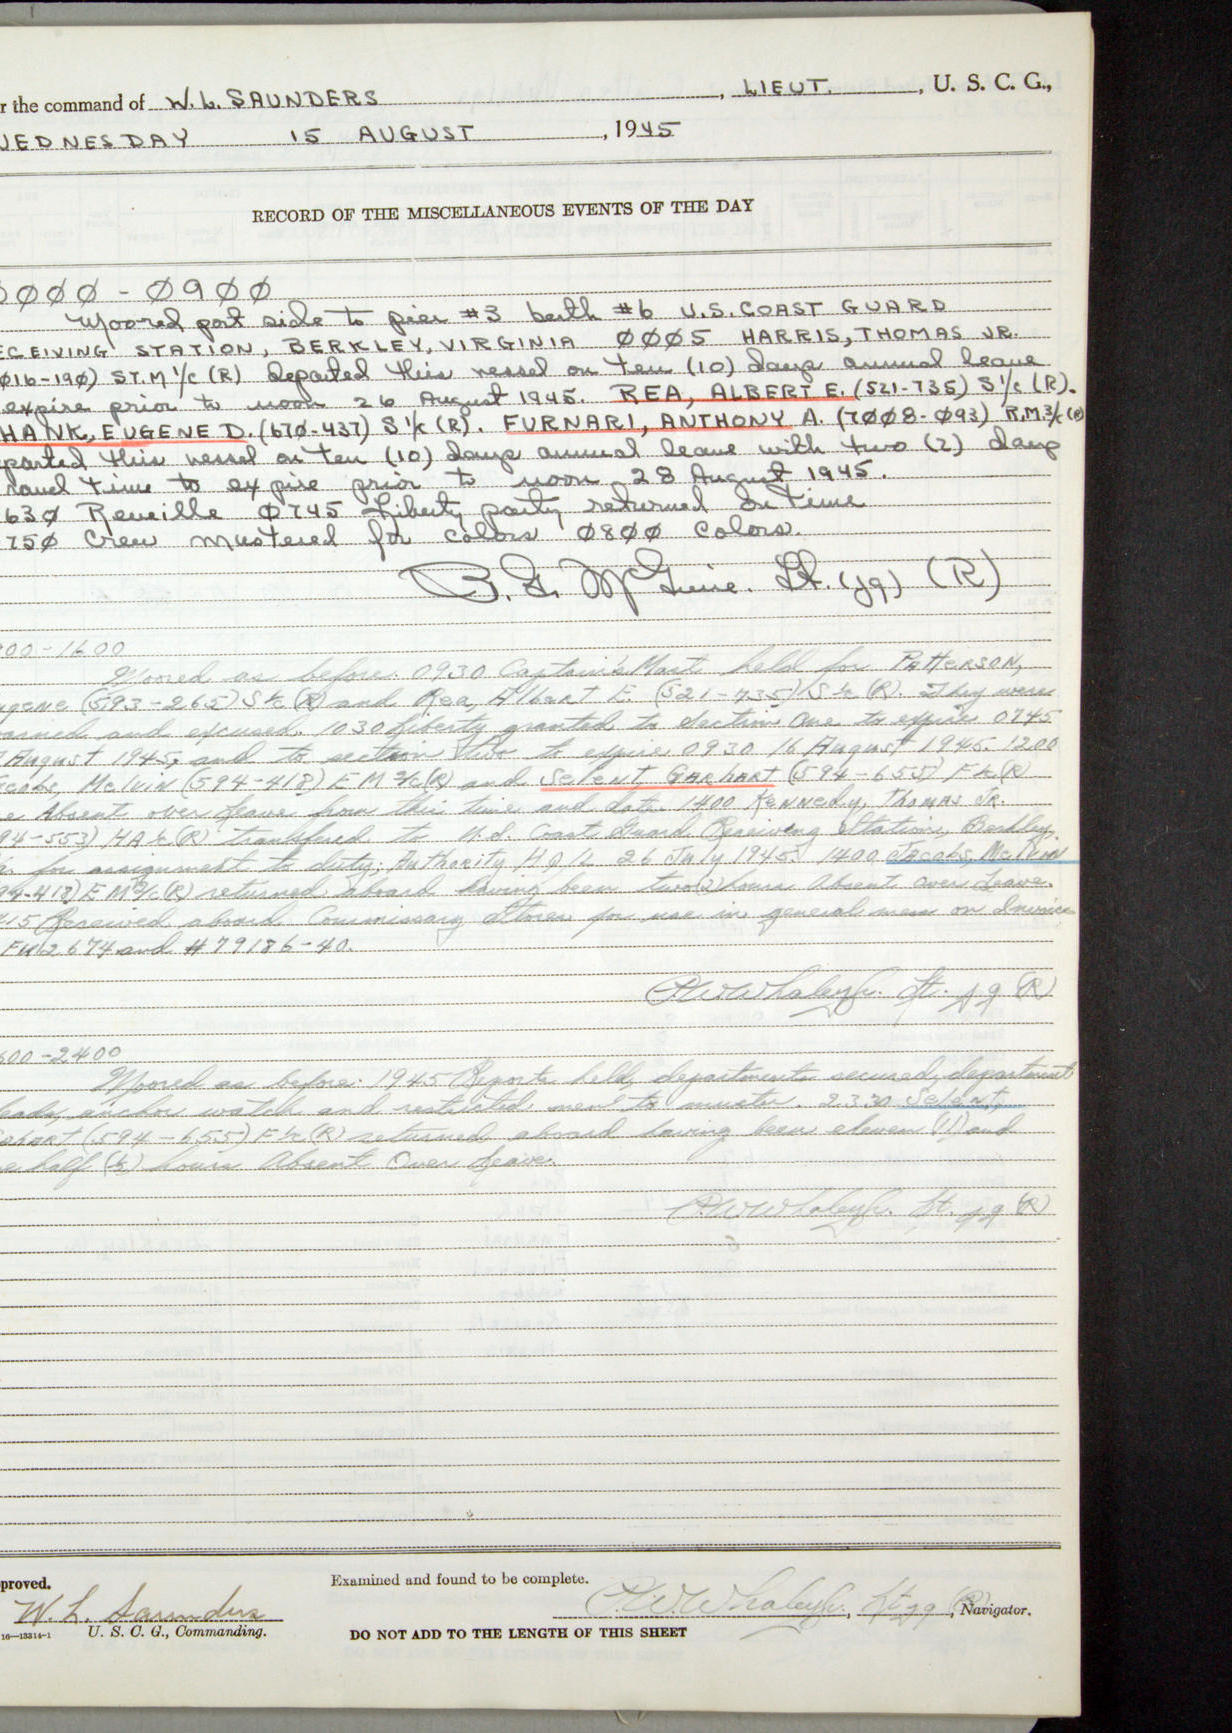 r the command of W. L. SAUNDERS, LIEUT., U. S. C. G.,
WEDNESDAY 15 AUGUST, 1945
RECORD OF THE MISCELLANEOUS EVENTS OF THE DAY
0000 - 0900
Moored port side to pier #3 berth #6 U.S. COAST GUARD
ECEIVING STATION, BERKLEY, VIRGINIA 0005 HARRIS, THOMAS JR.
016-190) ST.M 1/c (R) departed this vessel on ten (10) days annual leave
expire prior to noon 26 August 1945. REA, ALBERT E. (521-735) S 1/c (R).
HANK, EUGENE D. (670-437) S 1/c (R). FURNARI, ANTHONY A. (7008-093) R.M 3/c (R)
parted this vessel on ten (10) days annual leave with two (2) days
ravel time to expire prior to noon 28 August 1945.
630 Reveille 0745 Liberty party returned on time
750 Crew mustered for colors 0800 Colors.
B. F. McGuire. Lt. (jg) (R)
00-1600
Moored as before. 0930 Captain's Mast held for PATTERSON,
ugene (593-265) S 1/c (R) and Rea, Albert E. (521-735) S 1/c (R). They were
arned and excused. 1030 Liberty granted to section One to expire 0745
August 1945, and to section two to expire 0930 16 August 1945. 1200
acobs, Melvin (594-418) E M 3/c (R) and Selent, Garhart (594-655) F 1/c (R)
e Absent over leave from this time and date. 1400 Kennedy, Thomas JR.
94-553) HA 1/c (R) transfered to U.S. Coast Guard Receiving Station, Berkley,
for assignment to duty; Authority H.Q. L 26 July 1945. 1400 Jacobs, Melvin
94-418) E M 3/c (R) returned aboard having been two (2) hours Absent Over Leave.
415 Received aboard Commissary Stores for use in general mess on Invoice
674 and # 79186-40.
R.W. Whaley Jr. Lt. jg (R)
600-2400
Moored as before: 1945 Reports held, departments secured, department
eads, anchor watch and restricted men to muster. 2330 Selent,
(594-655) F 1/c (R) returned aboard having been eleven (11) and
e half (½) hours Absent Over Leave.
R.W. Whaley Jr. Lt. jg (R)
proved.
Examined and found to be complete.
W. L. Saunders
R.W. Whaley Jr., Lt. jg (R), Navigator.
16—13314-1 U. S. C. G., Commanding.
DO NOT ADD TO THE LENGTH OF THIS SHEET